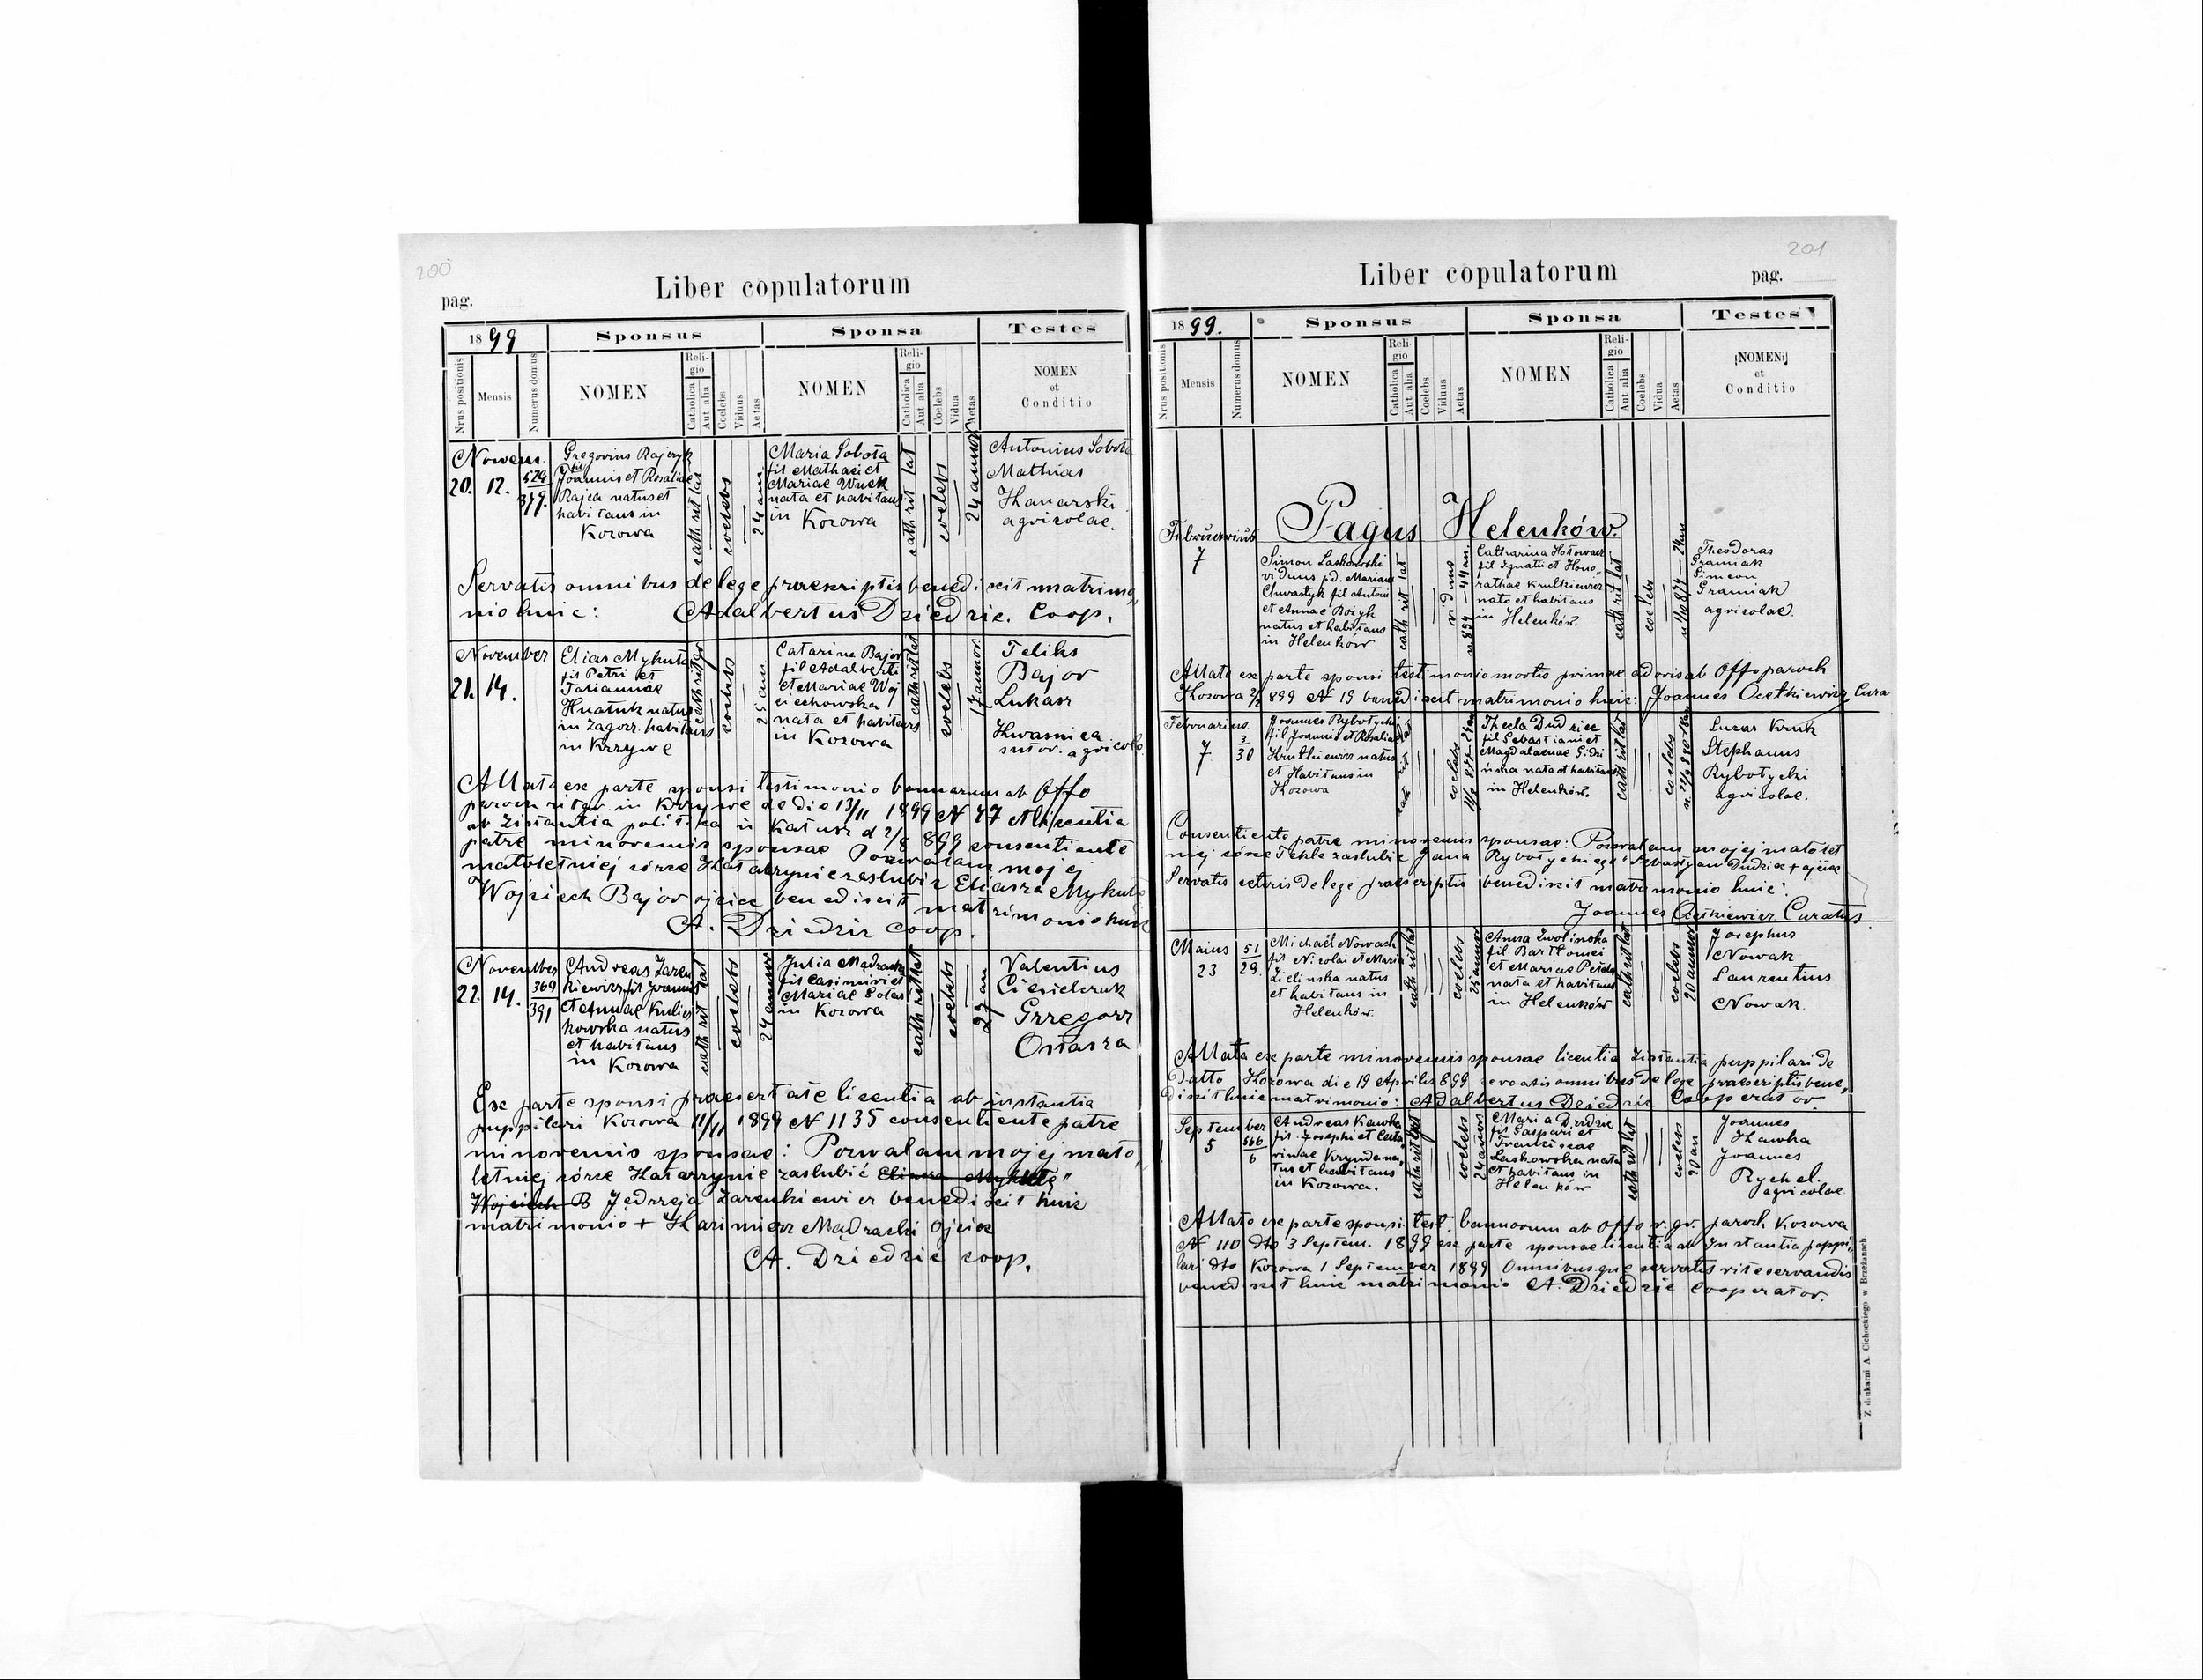 200
Liber copulatorum
pag.
1899
Sponsus
Sponsa
Testes
Nrus positionis
Mensis
Numerus domus
NOMEN
Religio
Catholica
Aut alia
Coelebs
Viduus
Aetas
NOMEN
Religio
Catholica
Aut alia
Coelebs
Vidua
Aetas
NOMEN
et
Conditio
Novem.
20. 12. 529
379.
Gregorius Rajczyk
fil
Joannis et Rosaliae
Rajca natus et
habitans in
Kozowa
cath rit lat
coelebs
24 ann
Maria Sobota
fil Mathaei et
Mariae Wnek
nata et habitans
in Kozowa
cath rit lat
coelebs
24 annor
Antonius Sobota
Mathias
Hanarski
agricolae.
Servatis omnibus de lege praescriptis benedixit matrimo
nio huic: Adalbertus Dziedzic. Coop.
November
21. 14.
Elias Mykuta
fil Petri et
Tatiannae
Hnatuk natus
in Zagorz. habitans
in Krzywe
cath rit gr
coelebs
25 ann
Catarina Bajor
fil Adalberti
et Mariae Woj
ciechowska
nata et habitans
in Kozowa
cath rit lat
coelebs
17 annor
Feliks
Bajor
Lukasz
Kwasnica
sutor. agricola.
Allato ex parte sponsi testimonio bannorum ab Offo
paroch rit gr. in Krzywe de die 13/11 1899 N 47 et licentia
ab Instantia politika in Katusz d 2/8 899 consentiente
patre minorenis sponsae Pozwalam mojej
matoletniej córze Katarzynie zaslubić Eliasza Mykutę
Wojciech Bajor ojciec benedixit matrimonio huic
A. Dziedzic coop.
November
22. 14. 369
391
Andreas Zaren
kiewicz fil Joannis
et Annae Kulisz
kowska natus
et habitans
in Kozowa
cath rit lat
coelebs
24 annor
Julia Mądracka
fil Casimiri et
Mariae Sotas
in Kozowa
cath rit lat
coelebs
27 an
Valentius
Ciesielczuk
Grzegorz
Ostasza
Ex parte sponsi praesertate licentia ab instantia
puppilari Kozowa 11/11 1899 N 1135 consentiente patre
minorenis sponsae: Pozwalam mojej mato
letniej córze Katarzynie zaslubić Eliasza Mykutę"
Wojciech B Jędrzeja Zarenkiewicz benedixit huic
matrimonio + Kazimierz Mądracki Ojciec
A. Dziedzic coop.
201
Liber copulatorum
pag.
1899.
Sponsus
Sponsa
Testes
Nrus positionis
Mensis
Numerus domus
NOMEN
Religio
Catholica
Aut alia
Coelebs
Viduus
Aetas
NOMEN
Religio
Catholica
Aut alia
Coelebs
Vidua
Aetas
NOMEN
et
Conditio
Pagus Helenków.
Februarius
7
Simon Laskowski
viduus pd. Mariam
Chwastyk fil Antoni
et Annae Bożyk
natus et habitans
in Helenków
cath rit lat
viduus
n. 854 – 44 an.
Catharina Hotowacz
fil Ignatii et Hono„
rathae Krutkiewicz
nata et habitans
in Helenków.
cath rit lat
coelebs
n 1/10 874 – 24 an
Theodoras
Framiak
Simeon
Framiak
agricolae
Allato ex parte sponsi testimonio mortis primae adoris ab Offo paroch
Kozowa 2/2 899 N 19 benedixit matrimonio huic: Joannes Ocetkiewicz Cura
Februarius
7 3
30
Joannes Rybotycki
fil Joannis et Rosaliae
Krutkiewicz natus
et Habitans in
Kozowa
coelebs
Thecla Dudziec
fil Sebastiani et
Magdalaenae Gidzi
ńska nata et habitans
in Helenków.
cath rit lat
coelebs
Lucas Kruk
Stephanus
Rybotycki
agricolae.
Consentiente patre minorenis sponsae: Pozwalam mojej małolet
niej córce Tekle zaslubić Jana Rybotyckiego" Sebastyan Dudziec + ojciec
Servatis ceteris de lege praescriptis benedixit matrimonio huic.
Joannes Ocetkiewicz Curatus
Maius
23 51
29.
Michaël Nowack
fil Nicolai et Maria
Zielinska natus
et habitans in
Helenków.
cath rit lat
coelebs
24 annor
Anna Zwolinska
fil. Bartlomei
et Mariae Petela
nata et habitans
in Helenków
cath rit lat
coelebs
20 annor
Josephus
Nowak
Laurentius
Nowak.
Allata ex parte minorenis sponsae licentia Instantia puppilari de
datto Kozowa die 19 Aprilis 899 servatis omnibus de lege praescriptis bene„
dixit huic matrimonio: Adalbertus Dziedzic Cooperator.
September
5 566
6
Andreas Kawka
fil Josephi et Cata„
rinae Krynda na„
tus et habitans
in Kozowa.
cath rit lat
coelebs
24 annos
Maria Dzidzic
fil Caspari et
Franciscae
Laskowska nata
et habitans in
Helenków
cath rit lat
coelebs
20 an
Joannes
Kawka
Joannes
Rychel.
agricolae
Allato ex parte sponsi test. bannorum ab Offo r. gr. paroch Kozowa
N 110 dto 3 Septem. 1899 ex parte sponsae licentia ab Instantia puppi„
lari dto Kozowa 1 September 1899 Omnibusque servatis rite servandis
benedixit huic matrimonio A. Dziedzic Cooperator.
Z drukarni A. Cichockiego w Brzeżanach.